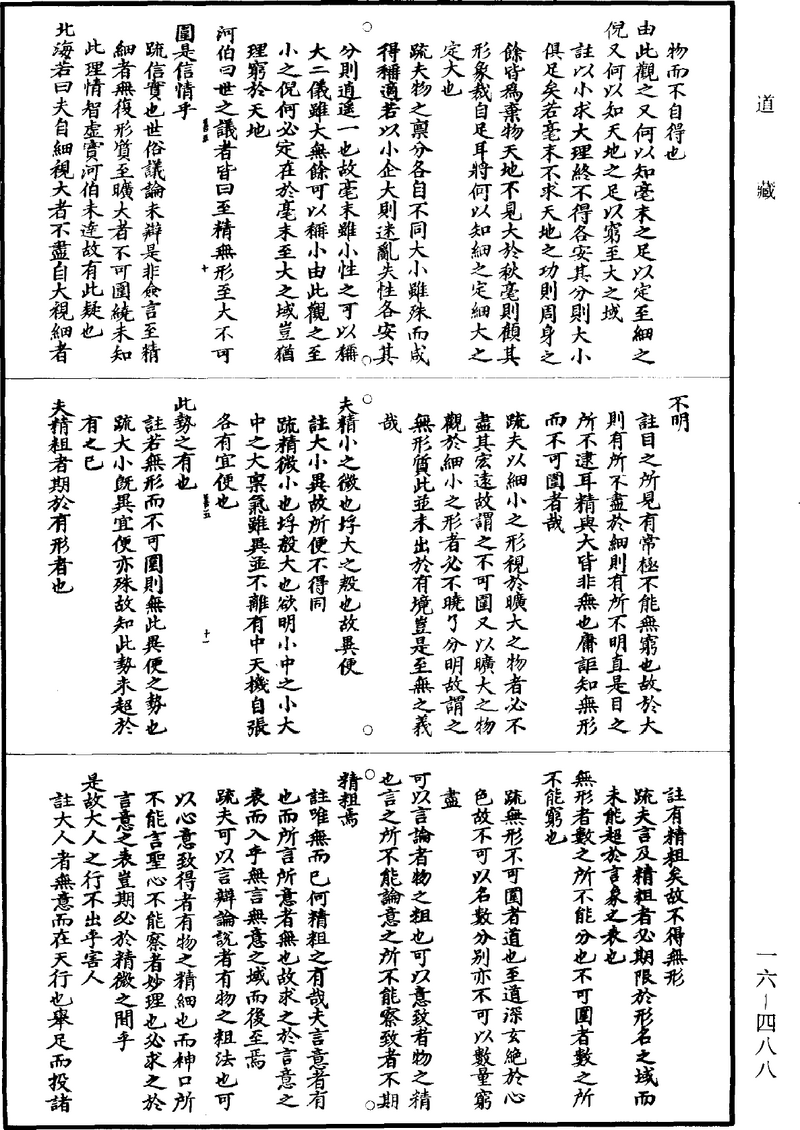 道藏
一六-四八八
物而不自得也
由此觀之又何以知毫末之足以定至細之
倪又何以知天地之足以窮至大之域
註以小求大理終不得各安其分則大小
俱足矣若毫末不求天地之功則周身之
餘皆為棄物天地不見大於秋毫則顧其
形象裁自足耳將何以知細之定細大之
定大也
疏夫物之稟分各自不同大小雖殊而咸
得稱適若以小企大則迷亂失性各安其
分則逍遥一也故毫末雖小性之可以稱
大二儀雖大無餘可以稱小由此觀之至
小之倪何必定在於毫末至大之域豈猶
理窮於天地
河伯曰世之議者皆曰至精無形至大不可
十
圍是信情乎
疏信實也世俗議論未辯是非僉言至精
細者無復形質至曠大者不可圍繞未知
此理情智虛實河伯未達故有此疑也
北海若曰夫自細視大者不盡自大視細者
不明
註目之所見有常極不能無窮也故於大
則有所不盡於細則有所不明直是目之
所不逮耳精與大皆非無也庸詎知無形
而不可圍者哉
疏夫以細小之形視於曠大之物者必不
盡其宏遠故謂之不可圍又以曠大之物
觀於細小之形者必不曉了分明故謂之
無形質此並未出於有境豈是至無之義
哉
夫精小之微也垺大之殷也故異便
註大小異故所便不得同
疏精微小也垺殷大也欲明小中之小大
中之大稟氣雖異並不離有中天機自張
各有宜便也
十一
此勢之有也
註若無形而不可圍則無此異便之勢也
疏大小既異宜便亦殊故知此勢未超於
有之已
夫精粗者期於有形者也
註有精粗矣故不得無形
疏夫言及精粗者必期限於形名之域而
未能超於言象之表也
無形者數之所不能分也不可圍者數之所
不能窮也
疏無形不可圍者道也至道深玄絶於心
色故不可以名數分别亦不可以數量窮
盡
可以言論者物之粗也可以意致者物之精
也言之所不能論意之所不能察致者不期
精粗焉
註唯無而已何精粗之有哉夫言意者有
也而所言所意者無也故求之於言意之
表而入乎無言無意之域而後至焉
疏夫可以言辯論說者有物之粗法也可
以心意致得者有物之精細也而神口所
不能言聖心不能察者妙理也必求之於
言意之表豈期必於精微之間乎
是故大人之行不出乎害人
註大人者無意而在天行也舉足而投諸